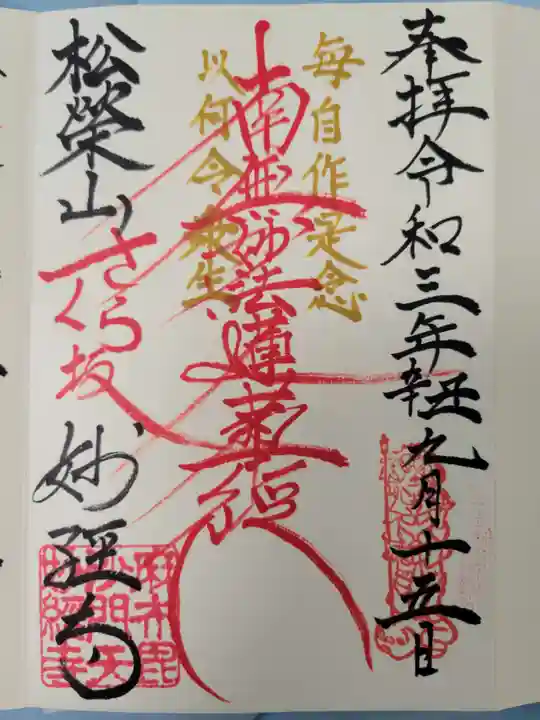 奉拝令和三年辛丑九月十五日
毎自作是念
南無妙法蓮華経
以何令衆生
さくら坂
松榮山 妙経寺